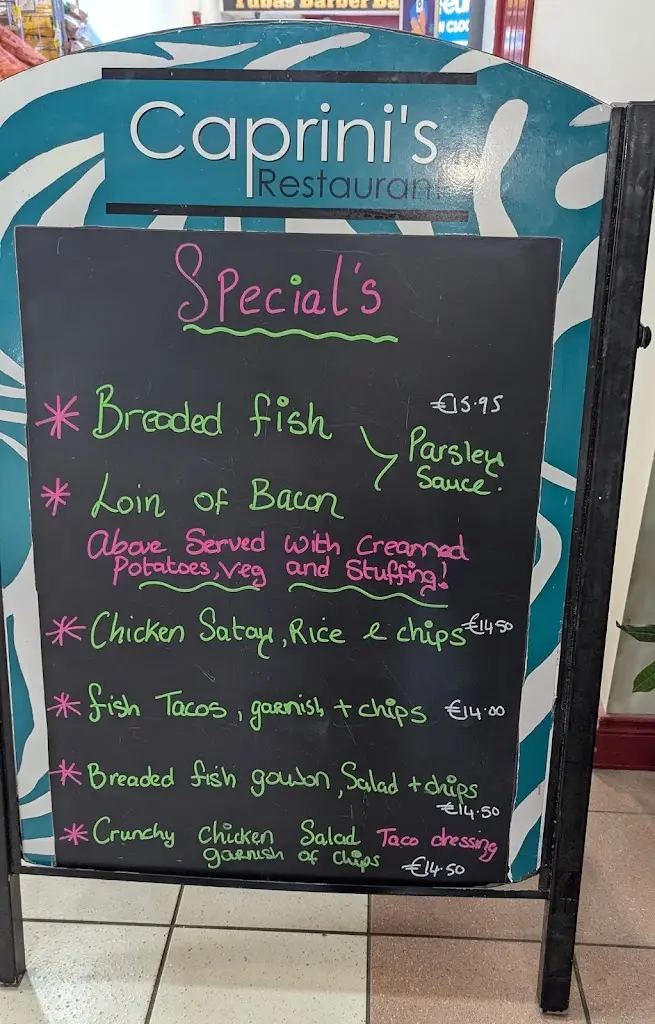 Tubas Barber Ba
Caprini's
Restaurant
Special's
Breaded fish €15.95
Loin of Bacon
Parsley
Sauce.
Above Served with Creamed
Potatoes, Veg and Stuffing!
Chicken Satay, Rice & chips €14.50
fish Tacos, garnish + chips €14.00
Breaded fish goujon, Salad + chips
€14.50
Crunchy Chicken Salad Taco dressing
garnish of chips €14.50